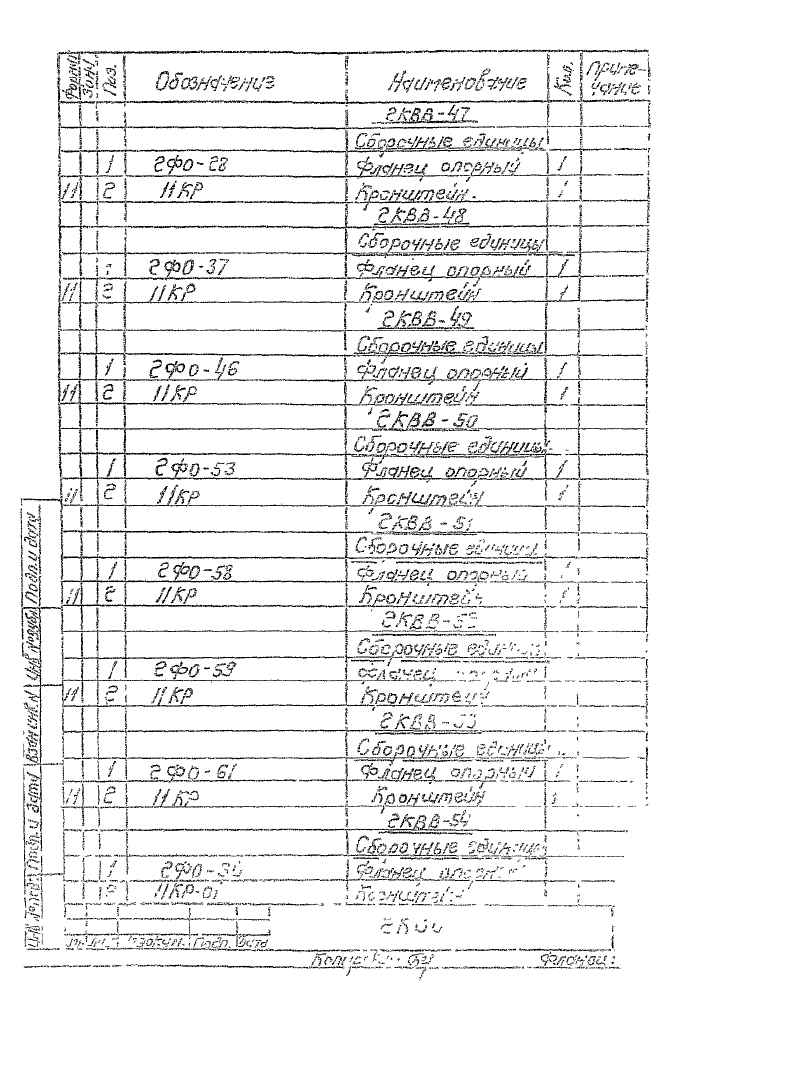 Формат Зона Поз. Обозначение Наименование Кол. Приме-
чание
2КВВ-47
Сборочные единицы
1 2ФО-28 Фланец опорный 1
11 2 11КР Кронштейн. 1
2КВВ-48
Сборочные единицы
2ФО-37 Фланец опорный 1
11 2 11КР Кронштейн 1
2КВВ-49
Сборочные единицы
1 2ФО-46 Фланец опорный 1
11 2 11КР Кронштейн 1
2КВВ-50
Сборочные единицы
1 2ФО-53 Фланец опорный 1
11 2 11КР Кронштейн 1
2КВВ-51
Сборочные единицы
1 2ФО-58 Фланец опорный 1
11 2 11КР Кронштейн 1
Сборочные единицы
1 2ФО-59 Фланец опорный
11 2 11КР Кронштейн
2КВВ-53
Сборочные единицы
1 2ФО-61 Фланец опорный 1
11 2 11КР Кронштейн 1
2КВВ-54
Сборочные единицы
1 Фланец опорный
2 11КР-01 Кронштейн
Подп. и дата
Взам инв. N
Подп. и дата
Подп. Дата